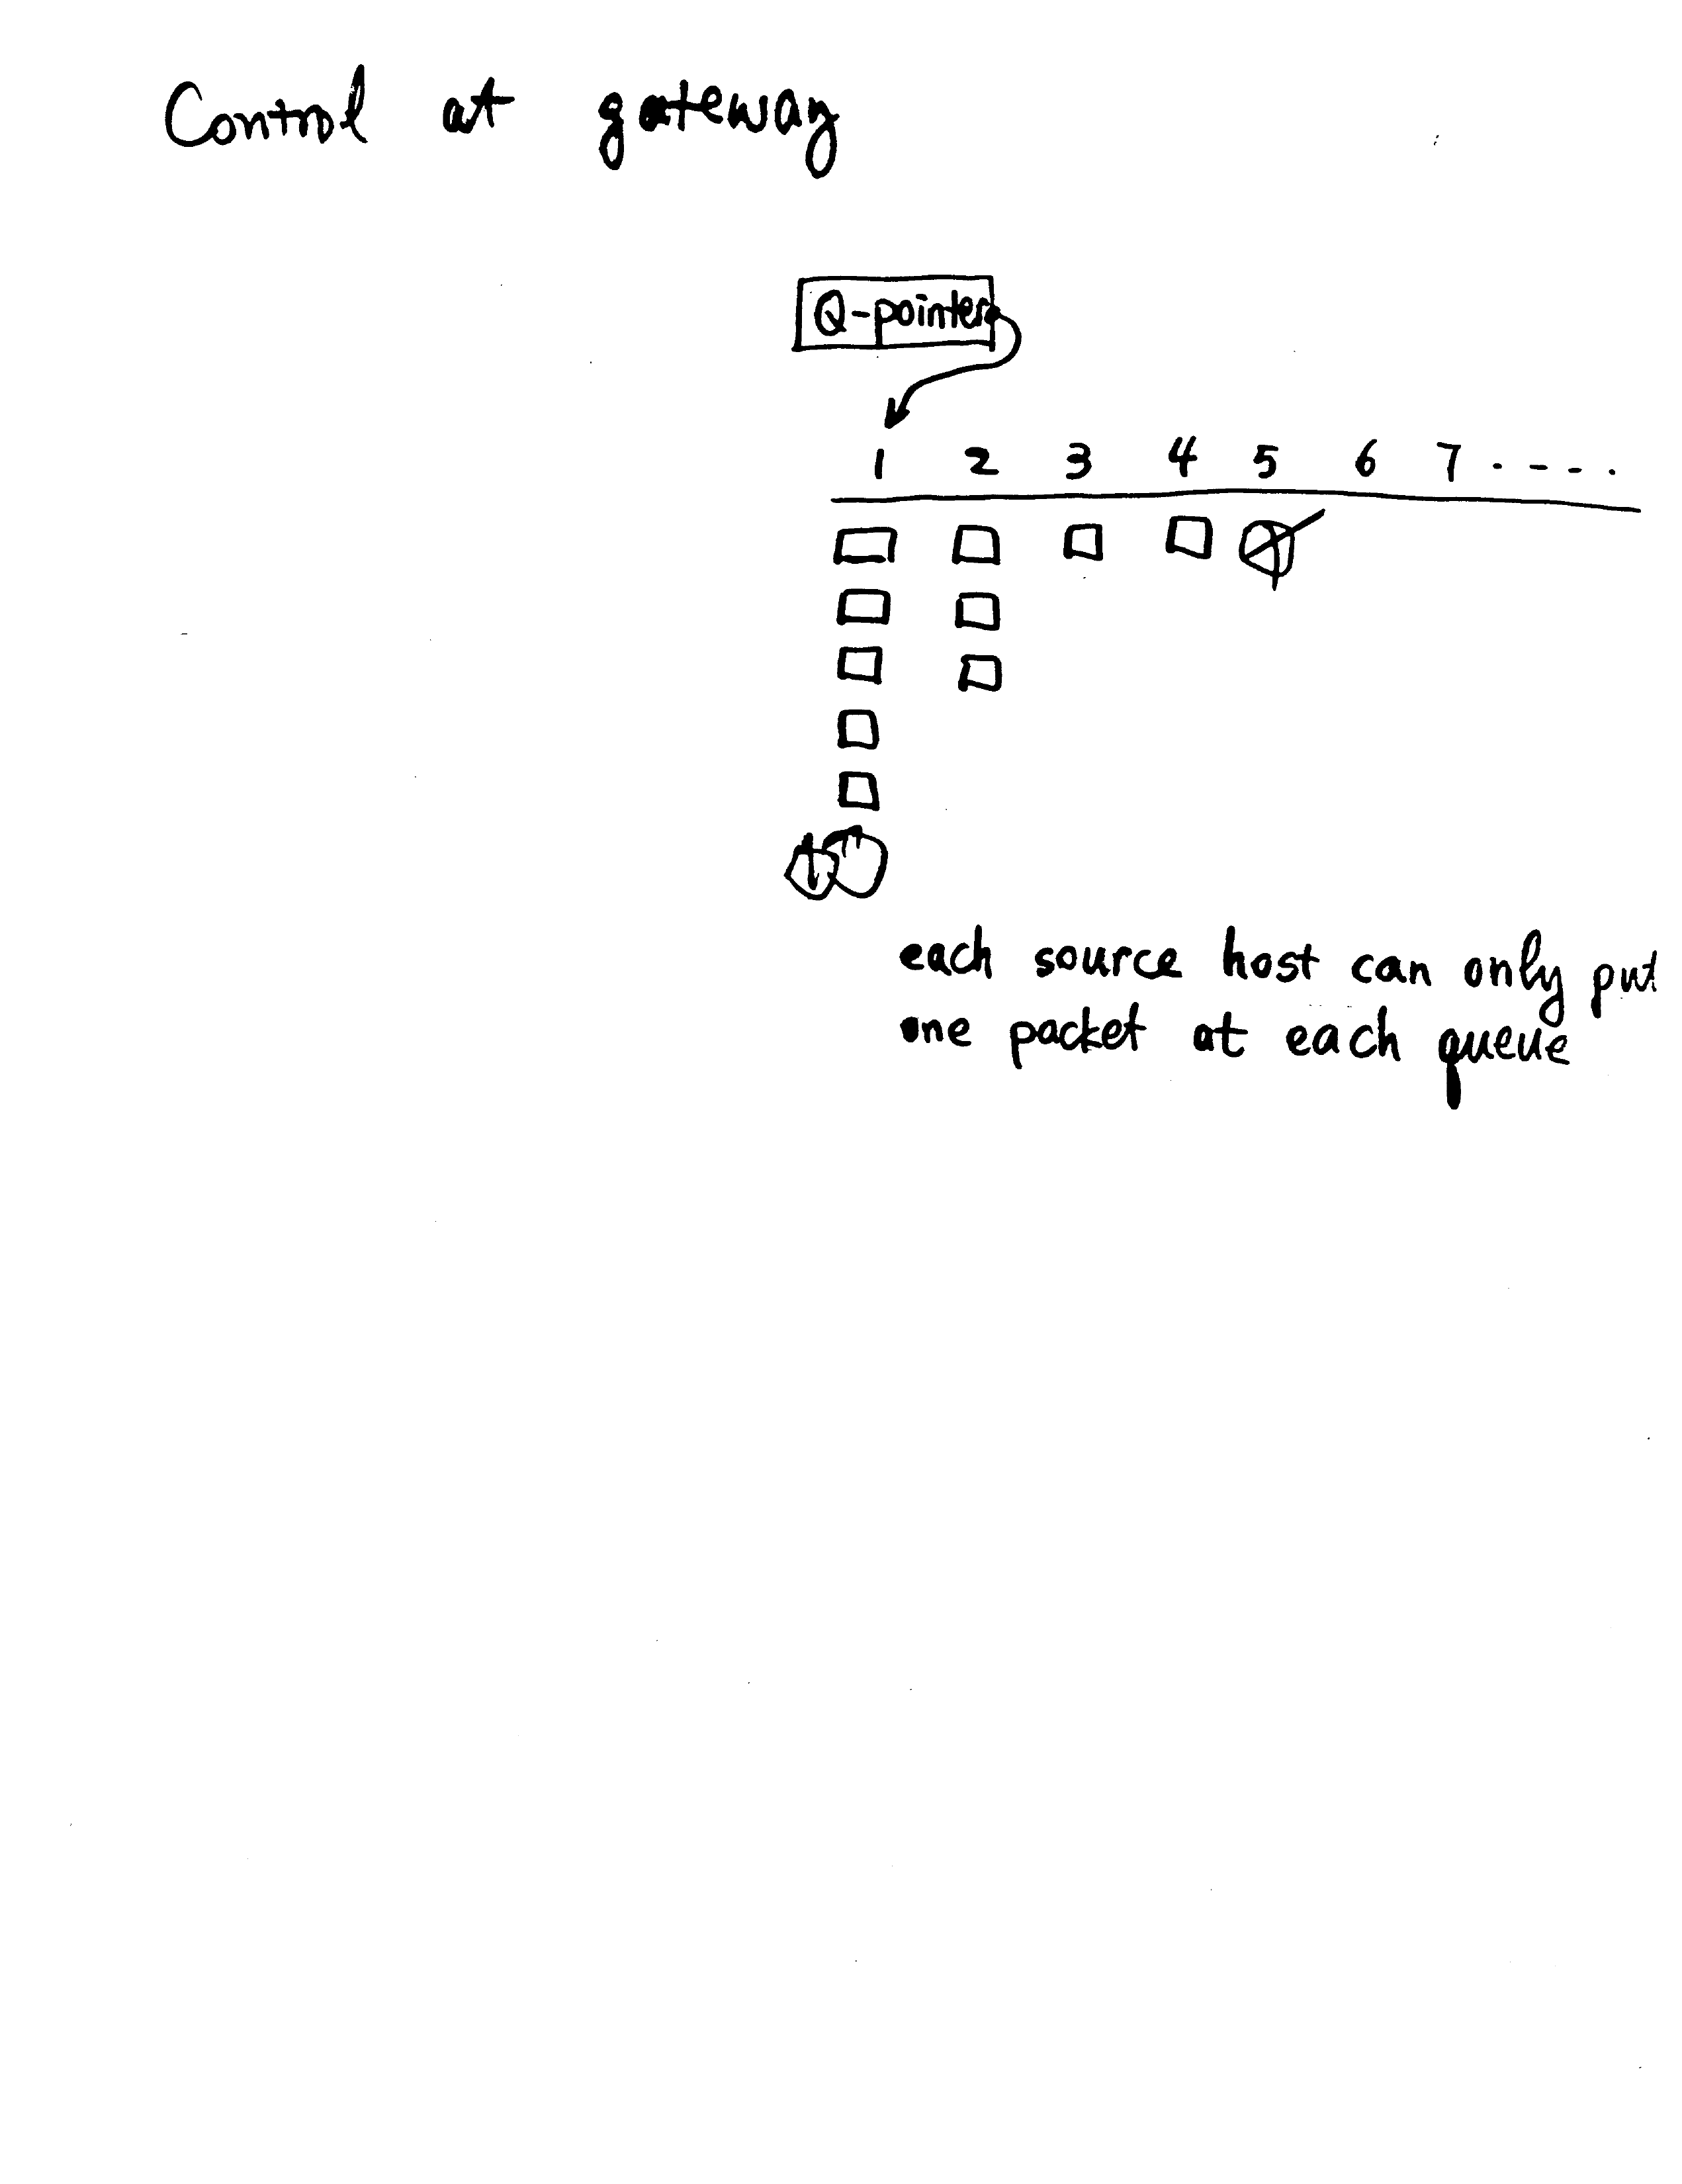 Control at gateway
Q-pointer
1 2 3 4 5 6 7 . - - - .
each source host can only put
one packet at each queue